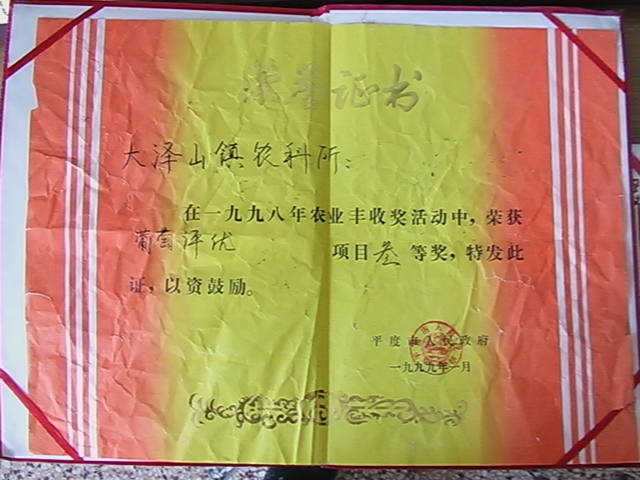 荣誉证书
大泽山镇农科所：
在一九九八年农业丰收奖活动中，荣获
葡萄评优 项目叁等奖，特发此
证，以资鼓励。
平度市人民政府
一九九九年一月